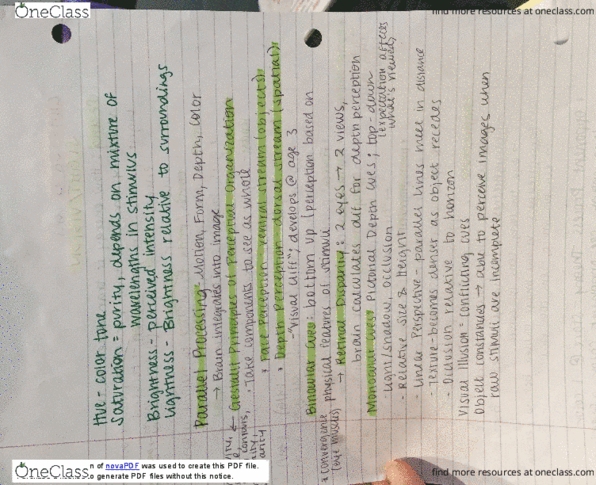 OneClass
find more resources at oneclass.com
Hue - color tone
Saturation = purity, depends on mixture of
wavelengths in stimulus
Brightness - Perceived intensity
Lightness - Brightness relative to surroundings
Parallel Processing: Motion, Form, Depth, Color
→ Brain integrates into image
← Gestalt Principles of Perceptual Organization
- Take components to see as whole
• Face Perception - ventral stream (object)
• Depth Perception - dorsal stream (spatial)
- "visual cliff"; develops @ age 3
Binocular Cues: bottom up (perception based on
physical features of stimuli
→ Retinal Disparity: 2 eyes → 2 views,
brain calculates dif for depth perception
* convergence
(eye muscles)
Monocular Cues: Pictorial Depth Cues; top-down
(expectation affects
what's viewed)
- Light/shadow, occlusion
- Relative size & height
- Linear Perspective - parallel lines meet in distance
- Texture - becomes denser as object recedes
- Occlusion relative to horizon
Visual Illusion = conflicting cues
Object constancies → able to perceive images when
raw stimuli are incomplete
OneClass
n of novaPDF was used to create this PDF file.
o generate PDF files without this notice.
find more resources at oneclass.com